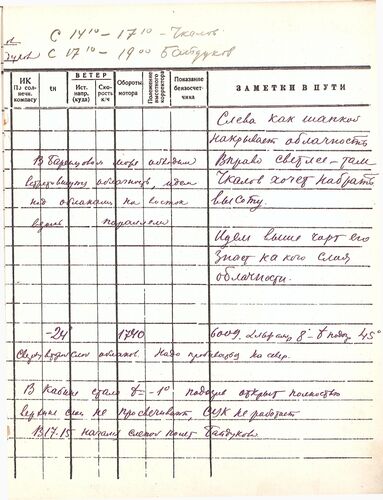 С 14¹⁰ – 17¹⁰ – Чкалов
С 17¹⁰ – 19⁰⁰ Байдуков
ИК По солнечн. компасу
tн
ВЕТЕР
Ист. напр. (куда)
Скорость к/ч
Обороты мотора
Положение высотного корректора
Показание бензосчетчика
ЗАМЕТКИ В ПУТИ
Слева как шапкой
накрывает облачность
В Баренцовом море обходим
Вправо светлее – там
встретившуюся облачность, идем
Чкалов хочет набрать
над облаками на восток
высоту.
вдоль параллели
Идем выше чорт его
знает какого слоя
облачности.
-24°
1740
45°
слой облаков. Надо пробиваться на север.
В кабине стало t = -1° открыт полностью
не просвечивает, СУК не работает
В 17.15 начали слепой полет Байдуков